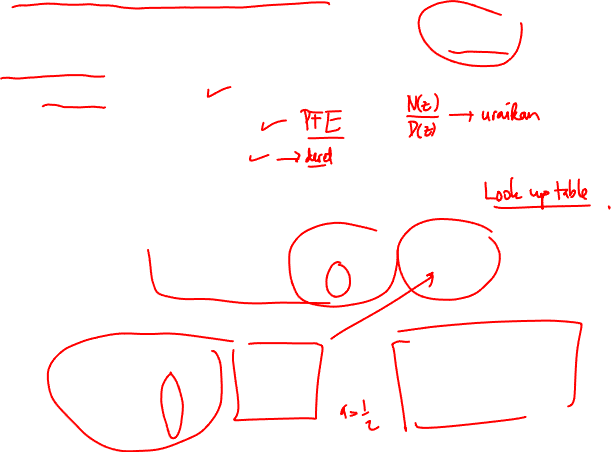 PFE
N(z)/D(z) → uraikan
→ deret
Look up table
a = 1/2